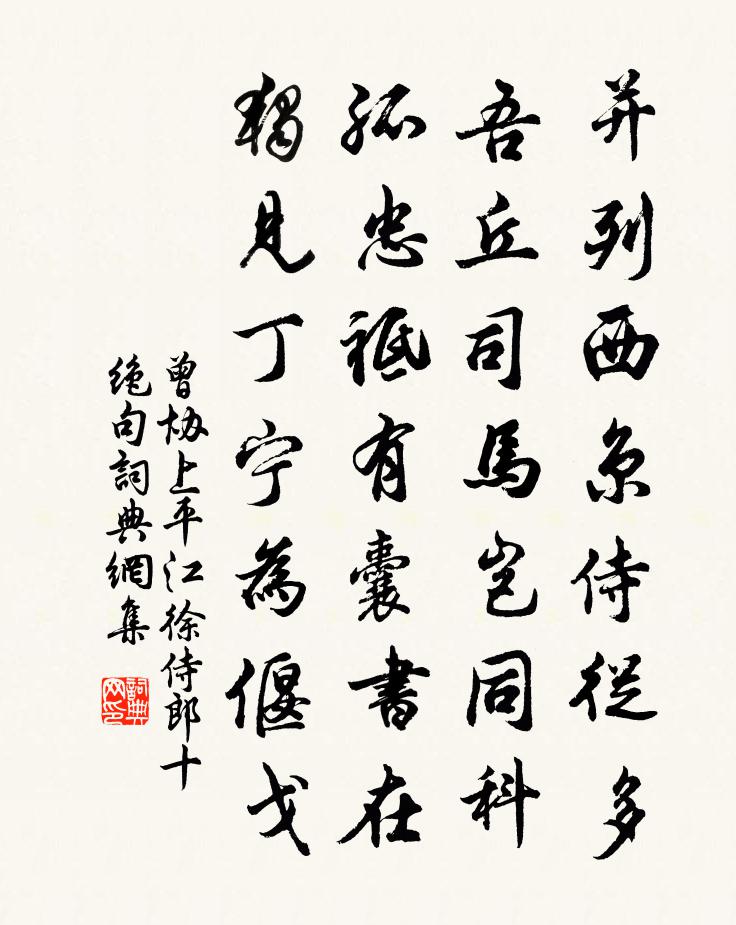 并列西京侍從多
吾丘司馬豈同科
孤忠祗有囊書在
獨見丁宁為偃戈
曾协上平江徐侍郎十
絶句詞典網集
詞典网印